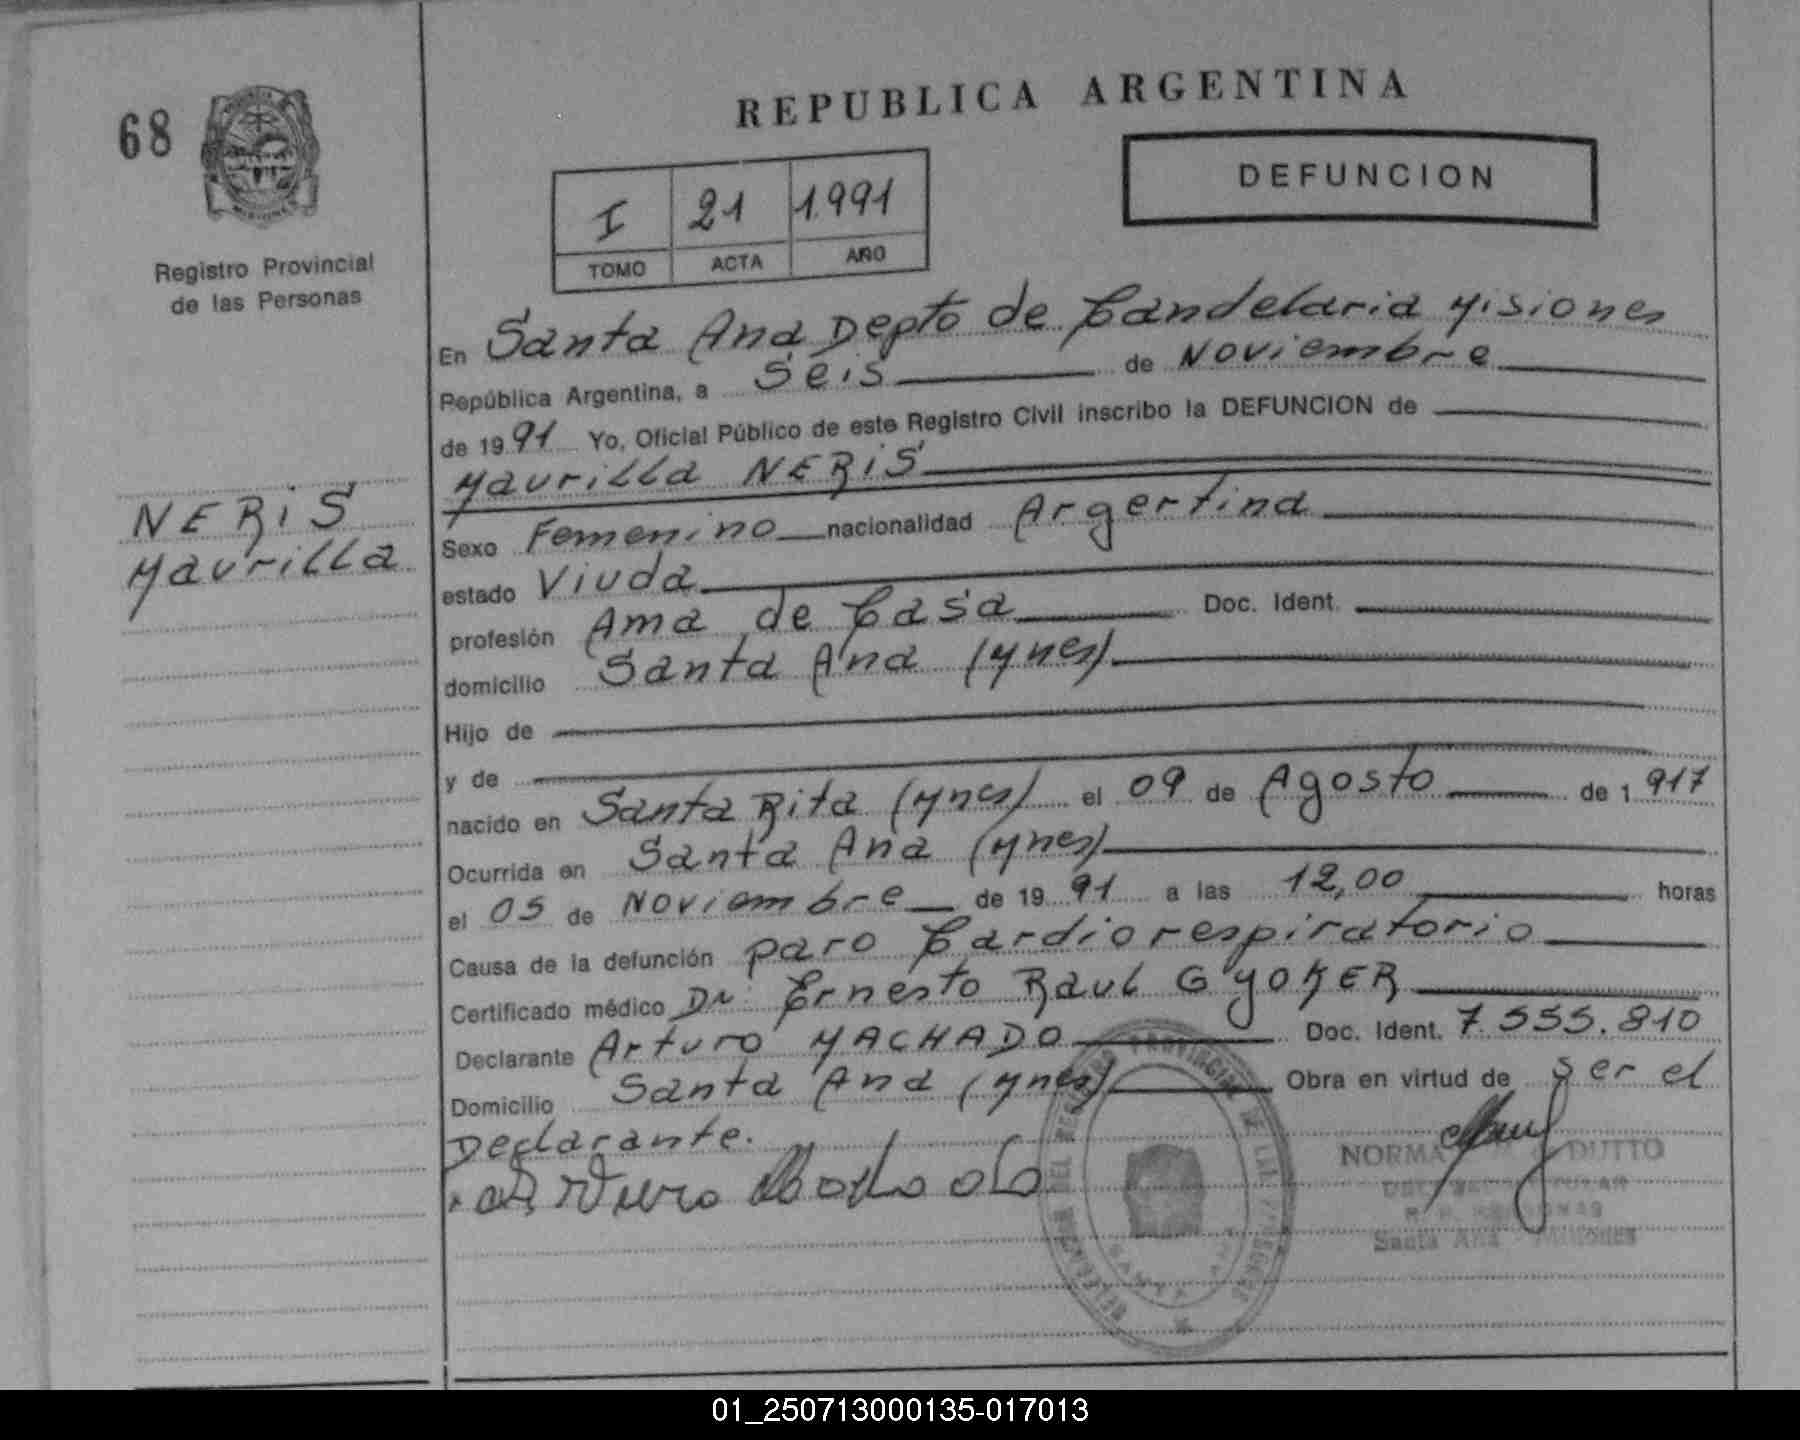 68
REPUBLICA ARGENTINA
DEFUNCION
I 21 1991
TOMO ACTA AÑO
Registro Provincial
de las Personas
NERiS
Maurilla
En Santa Ana Depto de Candelaria Misiones
República Argentina, a Seis de Noviembre
de 1991 Yo, Oficial Público de este Registro Civil inscribo la DEFUNCION de
Maurilla NERiS
Sexo Femenino nacionalidad Argentina
estado Viuda
profesión Ama de Casa Doc. Ident.
domicilio Santa Ana (Mnes)
Hijo de
y de
nacido en Santa Rita (Mnes) el 09 de Agosto de 1917
Ocurrida en Santa Ana (Mnes)
el 05 de Noviembre de 1991 a las 12,00 horas
Causa de la defunción paro Cardiorespiratorio
Certificado médico Dr. Ernesto Raul GYOKER
Declarante Arturo MACHADO Doc. Ident. 7.555.810
Domicilio Santa Ana (Mnes) Obra en virtud de Ser el
Declarante.
NORMA DUTTO
Santa Ana - Misiones
01_250713000135-017013